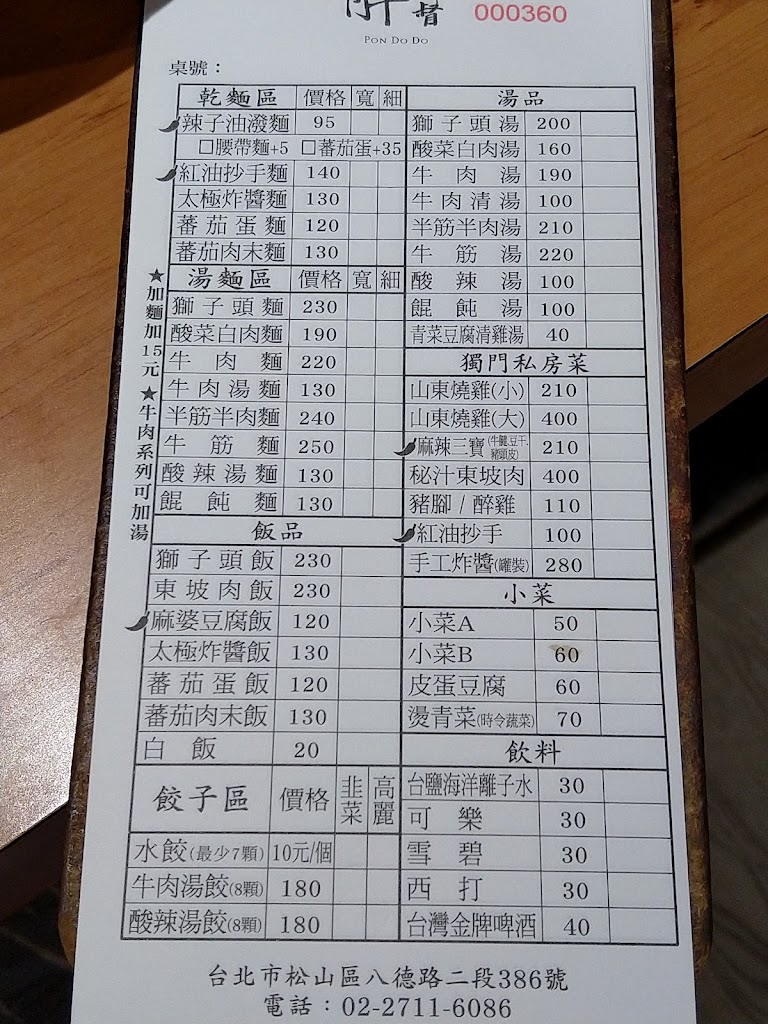 督
000360
PON DO DO
桌號：
乾麵區 價格 寬 細
辣子油潑麵 95
□腰帶麵+5 □蕃茄蛋+35
紅油抄手麵 140
太極炸醬麵 130
蕃茄蛋麵 120
蕃茄肉末麵 130
湯麵區 價格 寬 細
獅子頭麵 230
酸菜白肉麵 190
牛肉麵 220
牛肉湯麵 130
半筋半肉麵 240
牛筋麵 250
酸辣湯麵 130
餛飩麵 130
★加麵加15元★牛肉系列可加湯
飯品
獅子頭飯 230
東坡肉飯 230
麻婆豆腐飯 120
太極炸醬飯 130
蕃茄蛋飯 120
蕃茄肉末飯 130
白飯 20
餃子區 價格 韭菜 高麗
水餃(最少7顆) 10元/個
牛肉湯餃(8顆) 180
酸辣湯餃(8顆) 180
湯品
獅子頭湯 200
酸菜白肉湯 160
牛肉湯 190
牛肉清湯 100
半筋半肉湯 210
牛筋湯 220
酸辣湯 100
餛飩湯 100
青菜豆腐清雞湯 40
獨門私房菜
山東燒雞(小) 210
山東燒雞(大) 400
麻辣三寶(牛腱.豆干.豬頭皮) 210
秘汁東坡肉 400
豬腳/醉雞 110
紅油抄手 100
手工炸醬(罐裝) 280
小菜
小菜A 50
小菜B 60
皮蛋豆腐 60
燙青菜(時令蔬菜) 70
飲料
台鹽海洋離子水 30
可樂 30
雪碧 30
西打 30
台灣金牌啤酒 40
台北市松山區八德路二段386號
電話：02-2711-6086